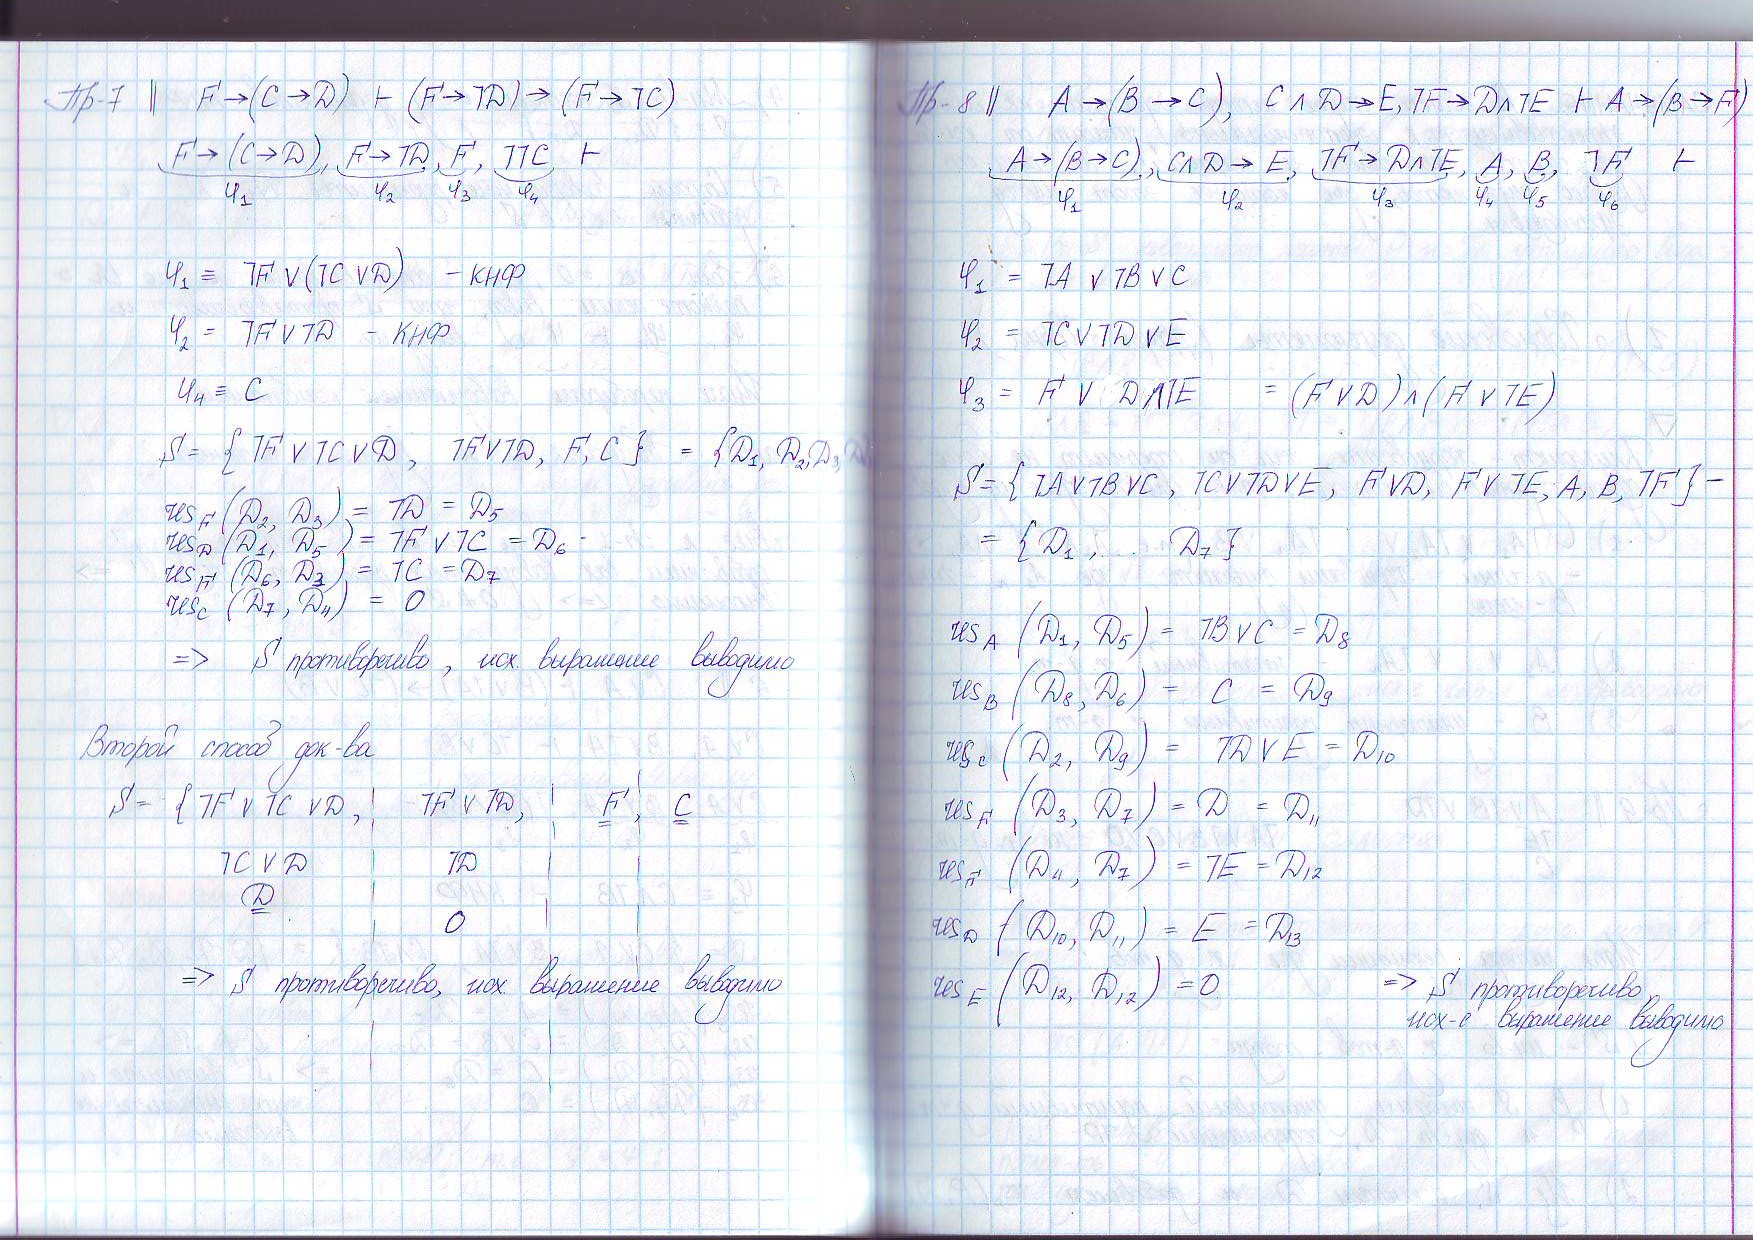 Пр-7 || F→(C→D) ⊢ (F→⌉D)→(F→⌉C)
F→(C→D), F→⌉D, F, ⌉⌉C ⊢
φ₁ φ₂ φ₃ φ₄
φ₁ ≡ ⌉F∨(⌉C∨D) – КНФ
φ₂ = ⌉F∨⌉D – КНФ
φ₄ ≡ C
S = {⌉F∨⌉C∨D, ⌉F∨⌉D, F, C} = {D₁, D₂, D₃,
res_F (D₂, D₃) = ⌉D = D₅
res_D (D₁, D₅) = ⌉F∨⌉C = D₆
res_F (D₆, D₃) = ⌉C = D₇
res_C (D₇, D₄) = 0
=> S противоречиво, исх. выражение выводимо
Второй способ док-ва
S = {⌉F∨⌉C∨D, ⌉F∨⌉D, F, C
⌉C∨D ⌉D
D
0
=> S противоречиво, исх. выражение выводимо
Пр-8 || A→(B→C), C∧D→E, ⌉F→D∧⌉E ⊢ A→(B→F)
A→(B→C), C∧D→E, ⌉F→D∧⌉E, A, B, ⌉F ⊢
φ₁ φ₂ φ₃ φ₄ φ₅ φ₆
φ₁ = ⌉A∨⌉B∨C
φ₂ = ⌉C∨⌉D∨E
φ₃ = F∨D∧⌉E = (F∨D)∧(F∨⌉E)
S = {⌉A∨⌉B∨C, ⌉C∨⌉D∨E, F∨D, F∨⌉E, A, B, ⌉F} –
= {D₁, ... D₇}
res_A (D₁, D₅) = ⌉B∨C = D₈
res_B (D₈, D₆) = C = D₉
res_C (D₂, D₉) = ⌉D∨E = D₁₀
res_F (D₃, D₇) = D = D₁₁
res_F (D₄, D₇) = ⌉E = D₁₂
res_D (D₁₀, D₁₁) = E = D₁₃
res_E (D₁₂, D₁₂) = 0 => S противоречиво
исх-е выражение выводимо